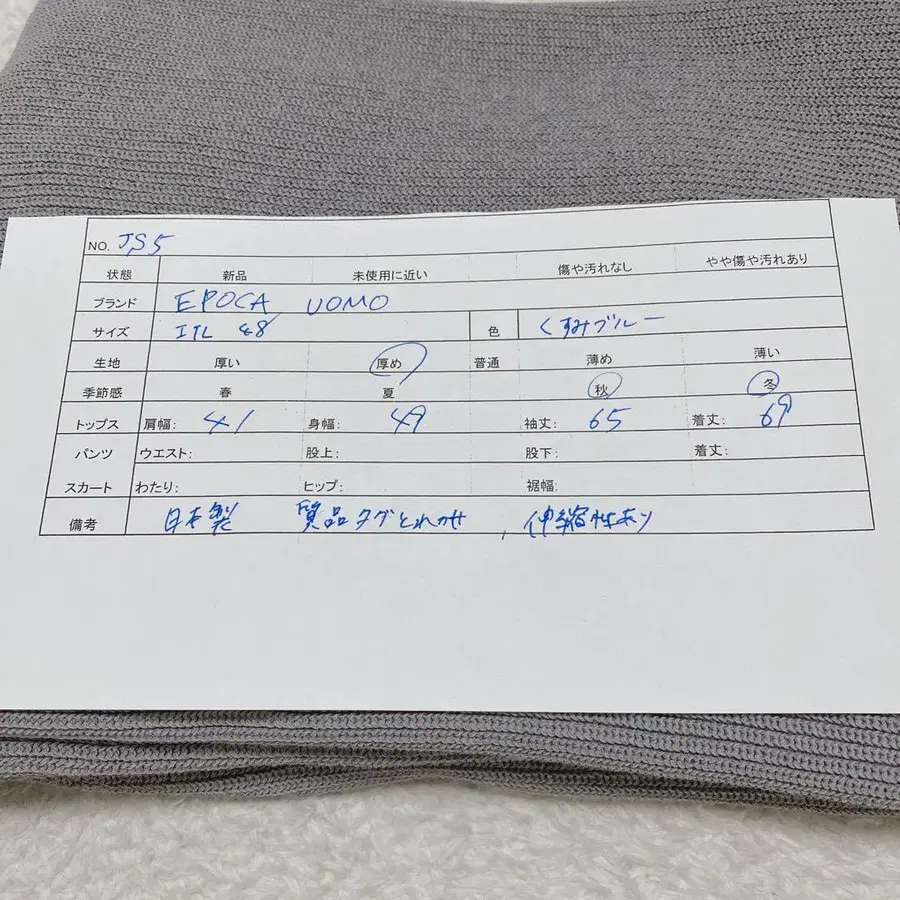 NO. JS5
状態 新品 未使用に近い 傷や汚れなし やや傷や汚れあり
ブランド EPOCA UOMO
サイズ ITL 48 色 くすみブルー
生地 厚い 厚め 普通 薄め 薄い
季節感 春 夏 秋 冬
トップス 肩幅: 41 身幅: 49 袖丈: 65 着丈: 69
パンツ ウエスト: 股上: 股下: 着丈:
スカート わたり: ヒップ: 裾幅:
備考 日本製 質品タグとれかけ、伸縮性あり